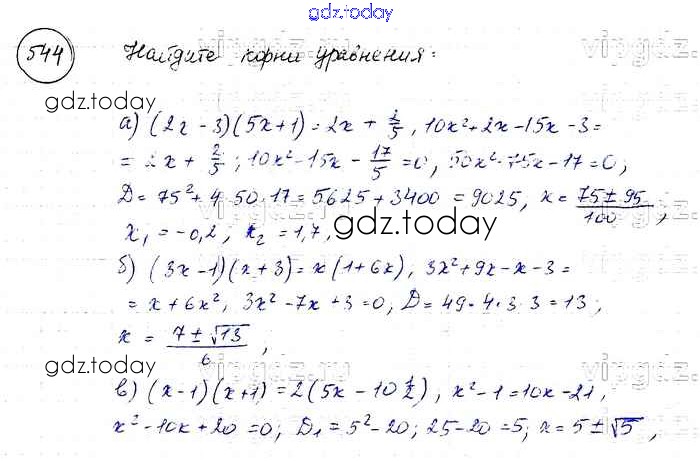 gdz.today
544 Найдите корни уравнения:
gdz.today
а) (2x - 3)(5x + 1) = 2x + 2/5, 10x² + 2x - 15x - 3 =
= 2x + 2/5; 10x² - 15x - 17/5 = 0, 50x² - 75x - 17 = 0;
D = 75² + 4·50·17 = 5625 + 3400 = 9025, x = (75 ± 95)/100,
gdz.today
x₁ = -0,2; x₂ = 1,7,
б) (3x - 1)(x + 3) = x(1 + 6x), 3x² + 9x - x - 3 =
gdz.today
= x + 6x², 3x² - 7x + 3 = 0, D = 49 - 4·3·3 = 13;
x = (7 ± √13)/6;
gdz.today
в) (x - 1)(x + 1) = 2(5x - 10 1/2), x² - 1 = 10x - 21,
x² - 10x + 20 = 0; D₁ = 5² - 20; 25 - 20 = 5; x = 5 ± √5,